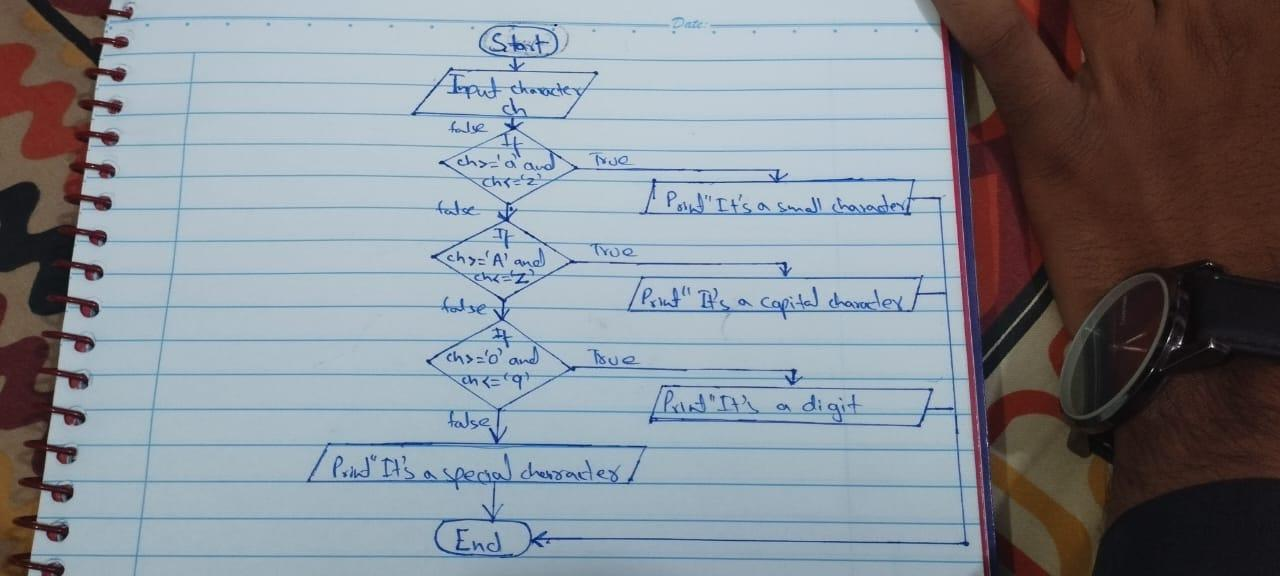 Date:
Start
Input character
ch
false
If
ch>='a' and
ch<='z'
True
Print"It's a small character
false
If
ch>='A' and
ch<='Z'
True
Print"It's a capital character
false
If
ch>='0' and
ch<='9'
True
Print"It's a digit
false
Print"It's a special character
End